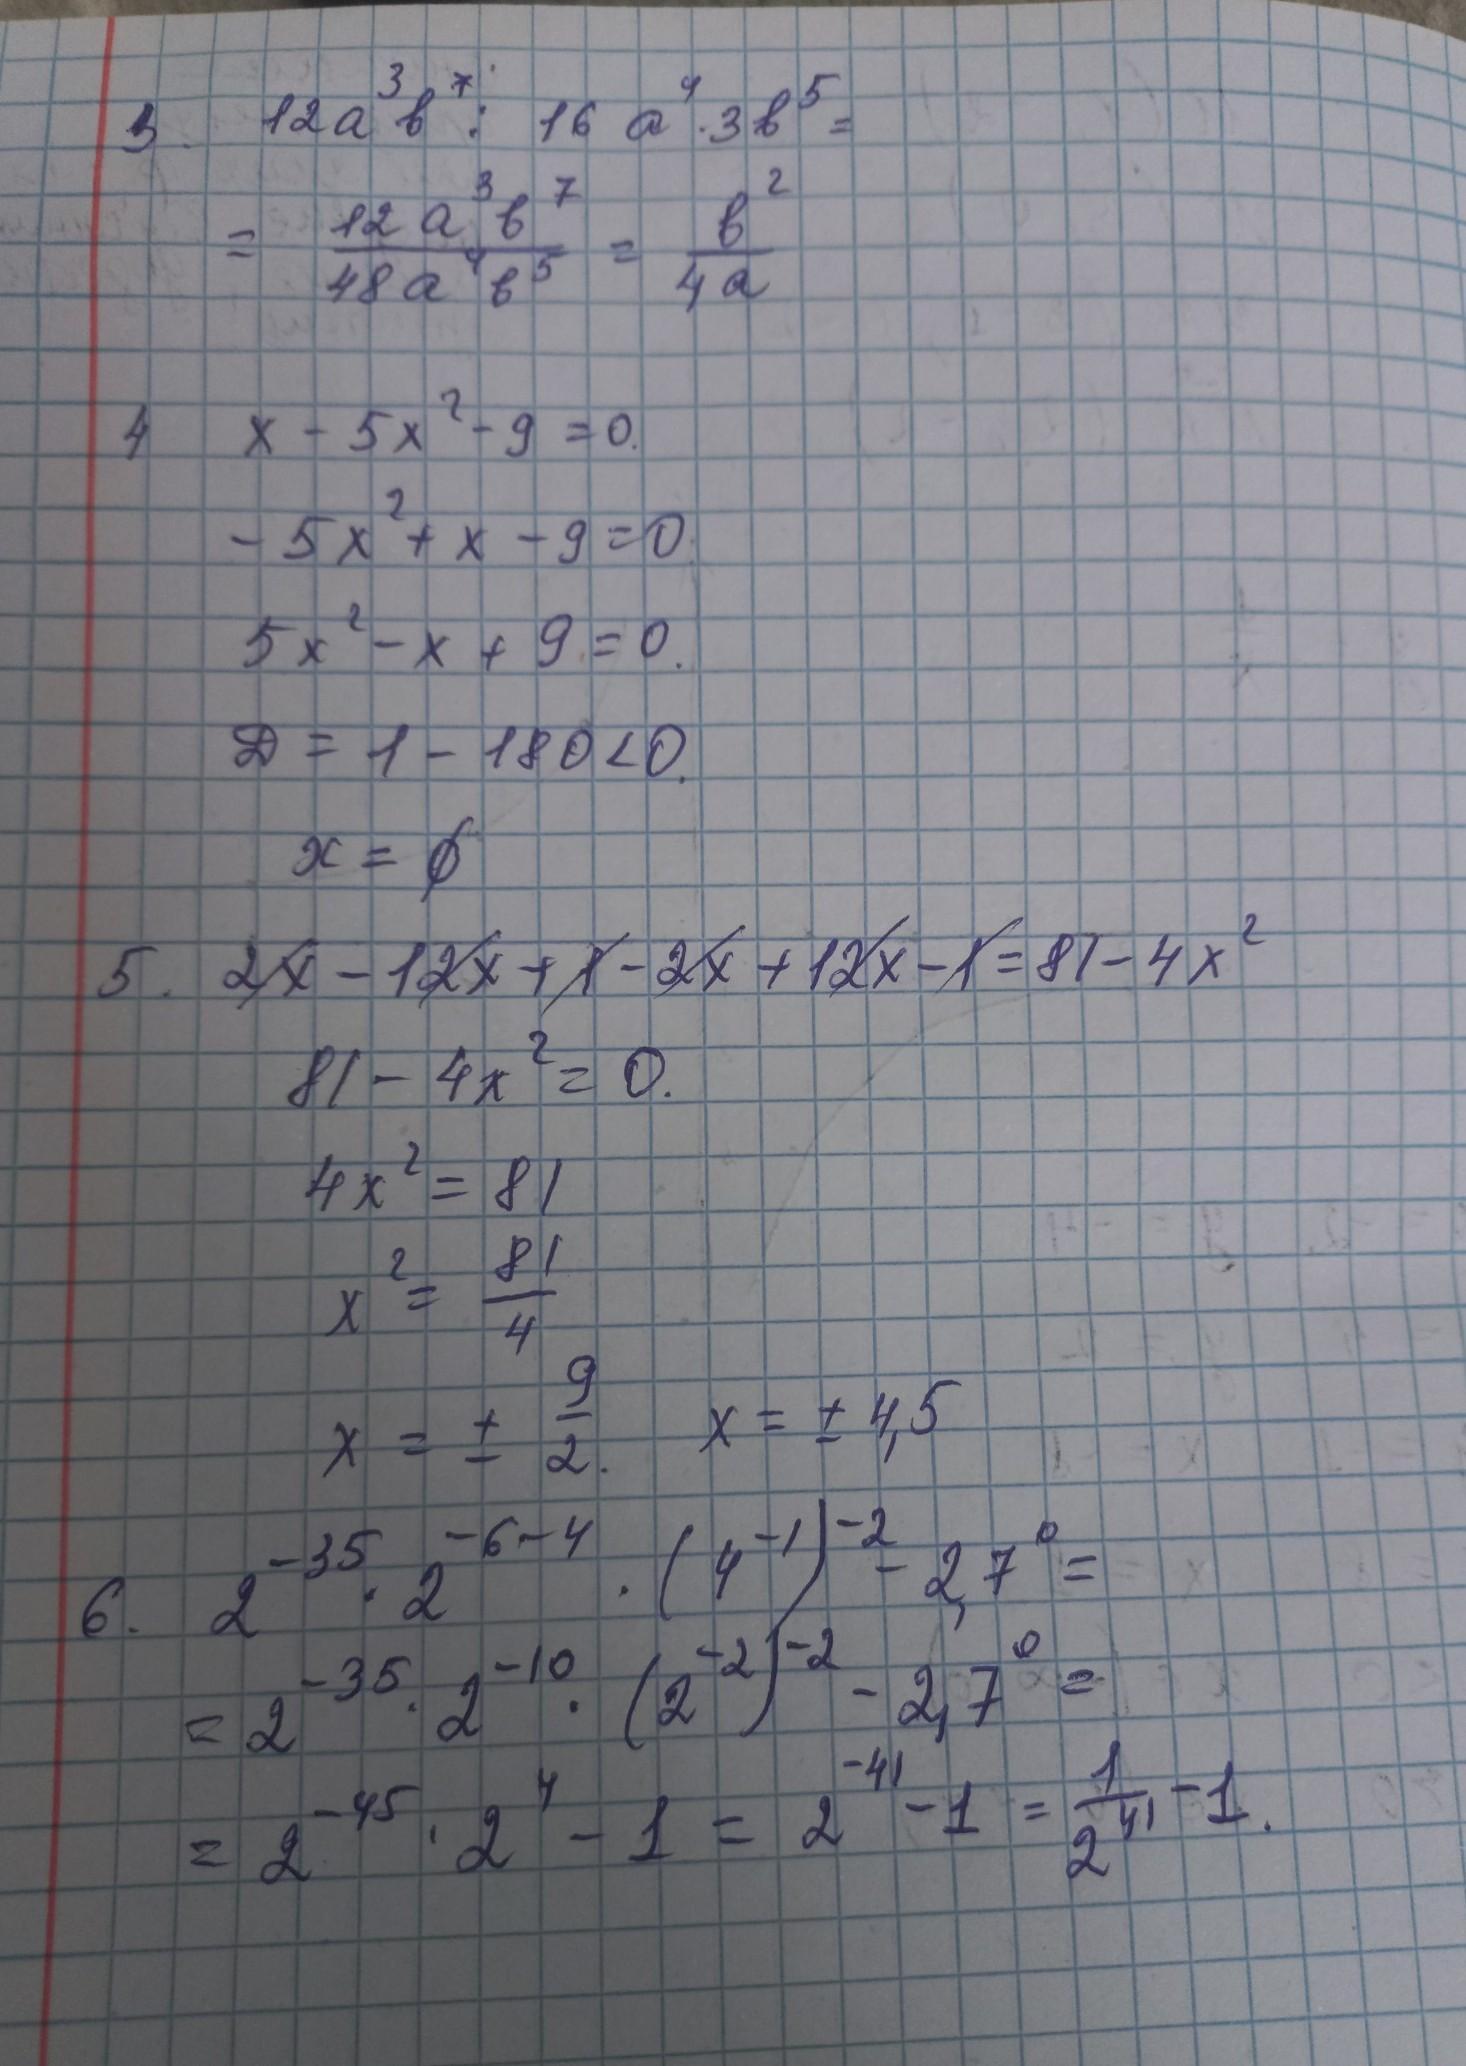 3. 12a³b⁷ : 16a⁴·3b⁵ =
= 12a³b⁷/48a⁴b⁵ = b²/4a
4 x - 5x² - 9 = 0.
-5x² + x - 9 = 0
5x² - x + 9 = 0.
D = 1 - 180 < 0.
x = ∅
5. 2x - 12x + 1 - 2x + 12x - 1 = 81 - 4x²
81 - 4x² = 0.
4x² = 81
x² = 81/4
x = ± 9/2. x = ± 4,5
6. 2⁻³⁵ · 2⁻⁶⁻⁴ · (4⁻¹)⁻² - 2,7⁰ =
= 2⁻³⁵ · 2⁻¹⁰ · (2⁻²)⁻² - 2,7⁰ =
= 2⁻⁴⁵ · 2⁴ - 1 = 2⁻⁴¹ - 1 = 1/2⁴¹ - 1.